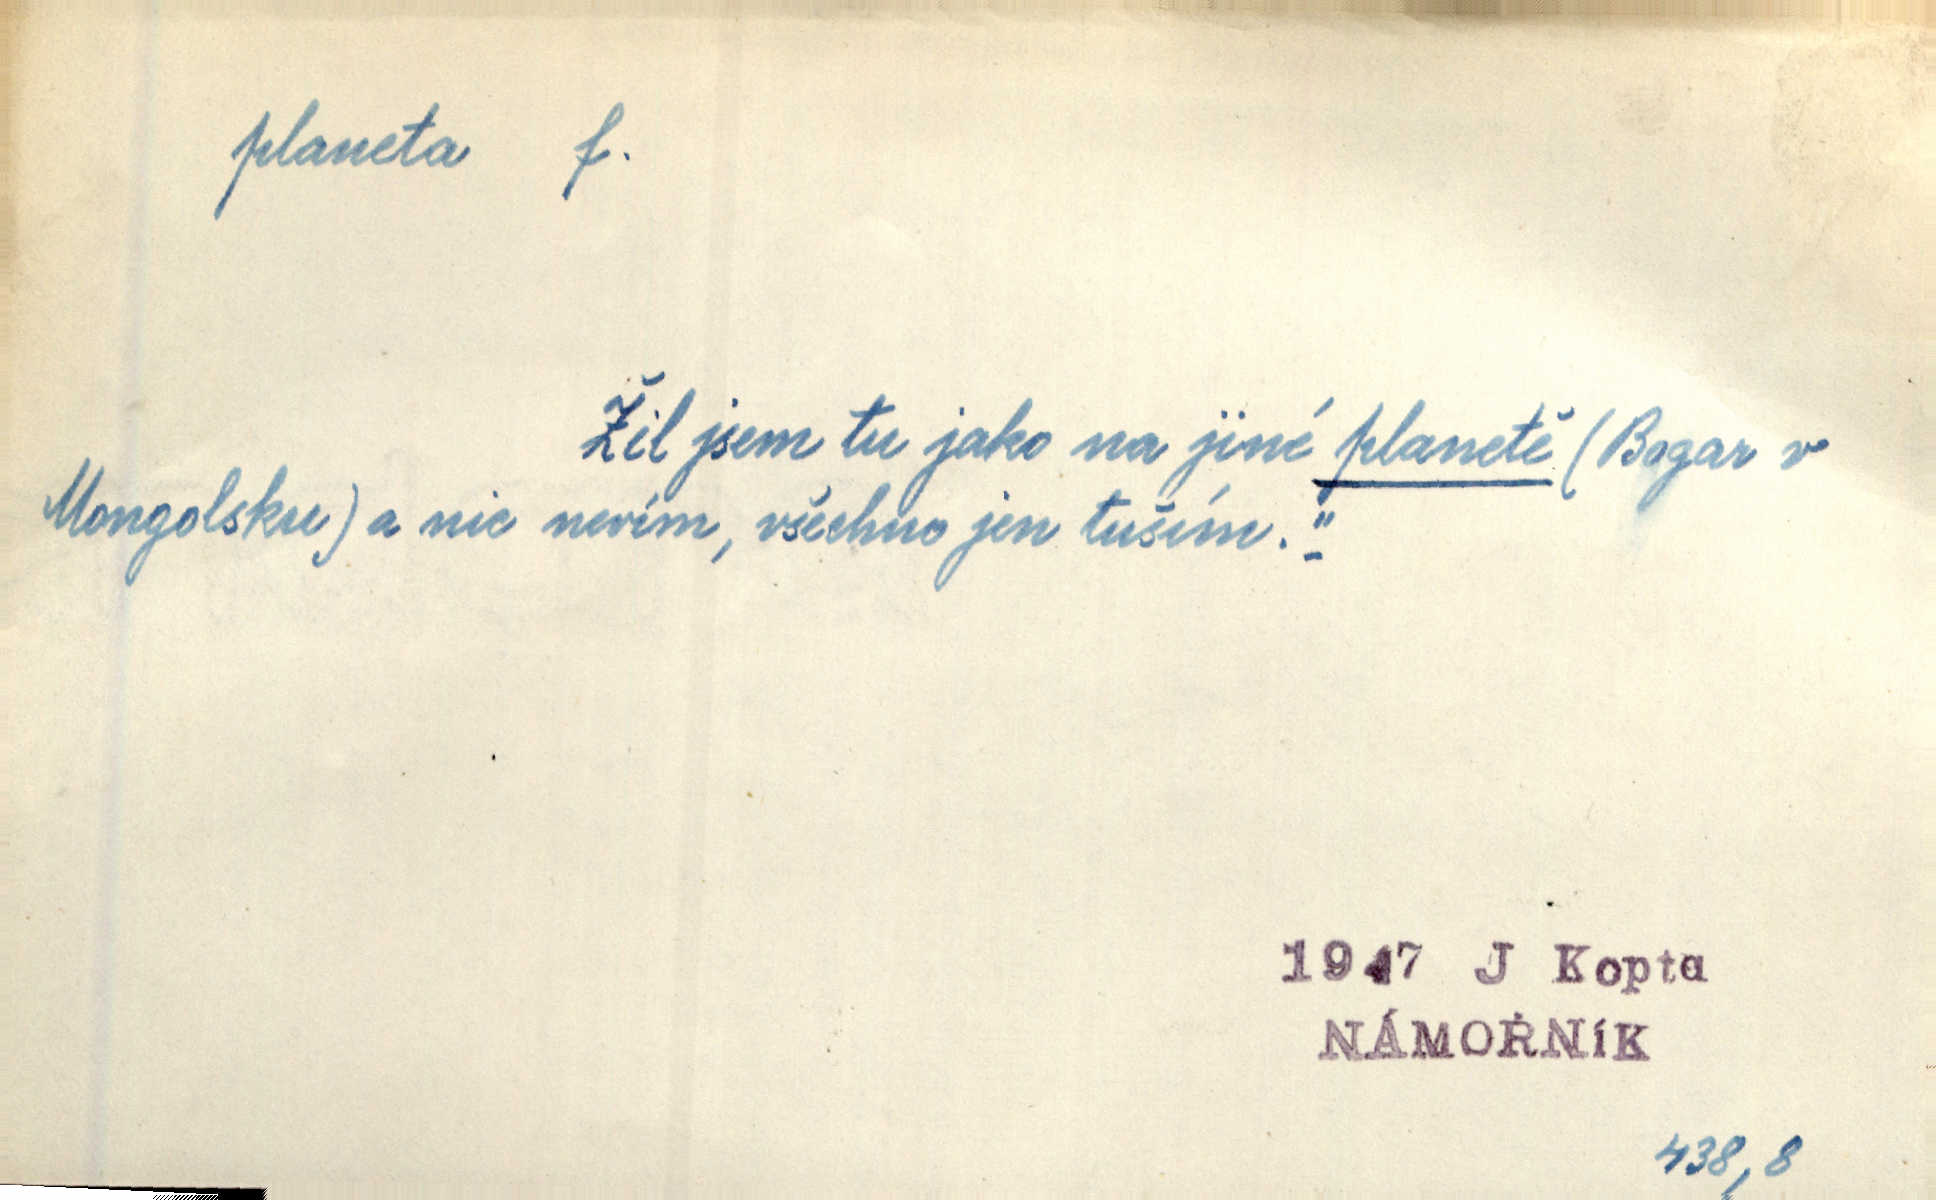 planeta f.
Žil jsem tu jako na jiné planetě (Bogar v
Mongolsku) a nic nevím, všechno jen tuším."
1947 J Kopta
NÁMOŘNíK
438,8